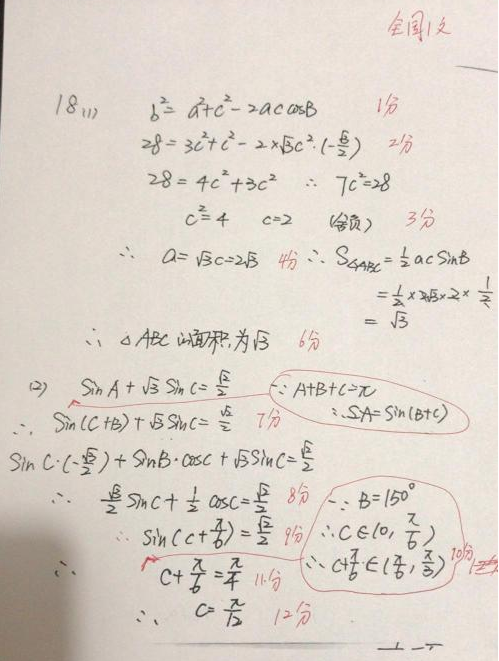 全国1文
18(1) b²=a²+c²-2accosB 1分
28=3c²+c²-2×√3c²·(-√3/2) 2分
28=4c²+3c² ∴ 7c²=28
c²=4 c=2 (舍负) 3分
∴ a=√3c=2√3 4分 ∴ S△ABC=1/2acSinB
=1/2×2√3×2×1/2
=√3
∴ △ABC的面积为√3 6分
(2) SinA+√3SinC=√2/2 ∵A+B+C=π
∴SA=Sin(B+C)
∴ Sin(C+B)+√3SinC=√2/2 7分
SinC·(-√3/2)+SinB·cosC+√3SinC=√2/2
∴ √3/2SinC+1/2cosC=√2/2 8分 ∵B=150°
∴ Sin(C+π/6)=√2/2 9分 ∴C∈(0,π/6)
∴C+π/6∈(π/6,π/3) 10分
∴ C+π/6=π/4 11分
∴ C=π/12 12分